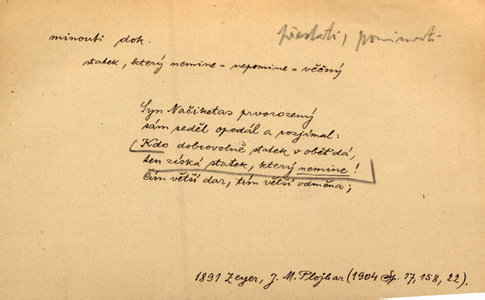 minouti dok.
přestati, pominouti
statek, který nemine = nepomine = věčný
Syn Načiketas prvorozený
sám seděl opodál a rozjímal:
Kdo dobrovolně statek v oběť dá,
ten získá statek, který nemine!
Čím větší dar, tím větší odměna;
1891 Zeyer, J. M. Plojhar (1904 Sp. 17, 158, 22).